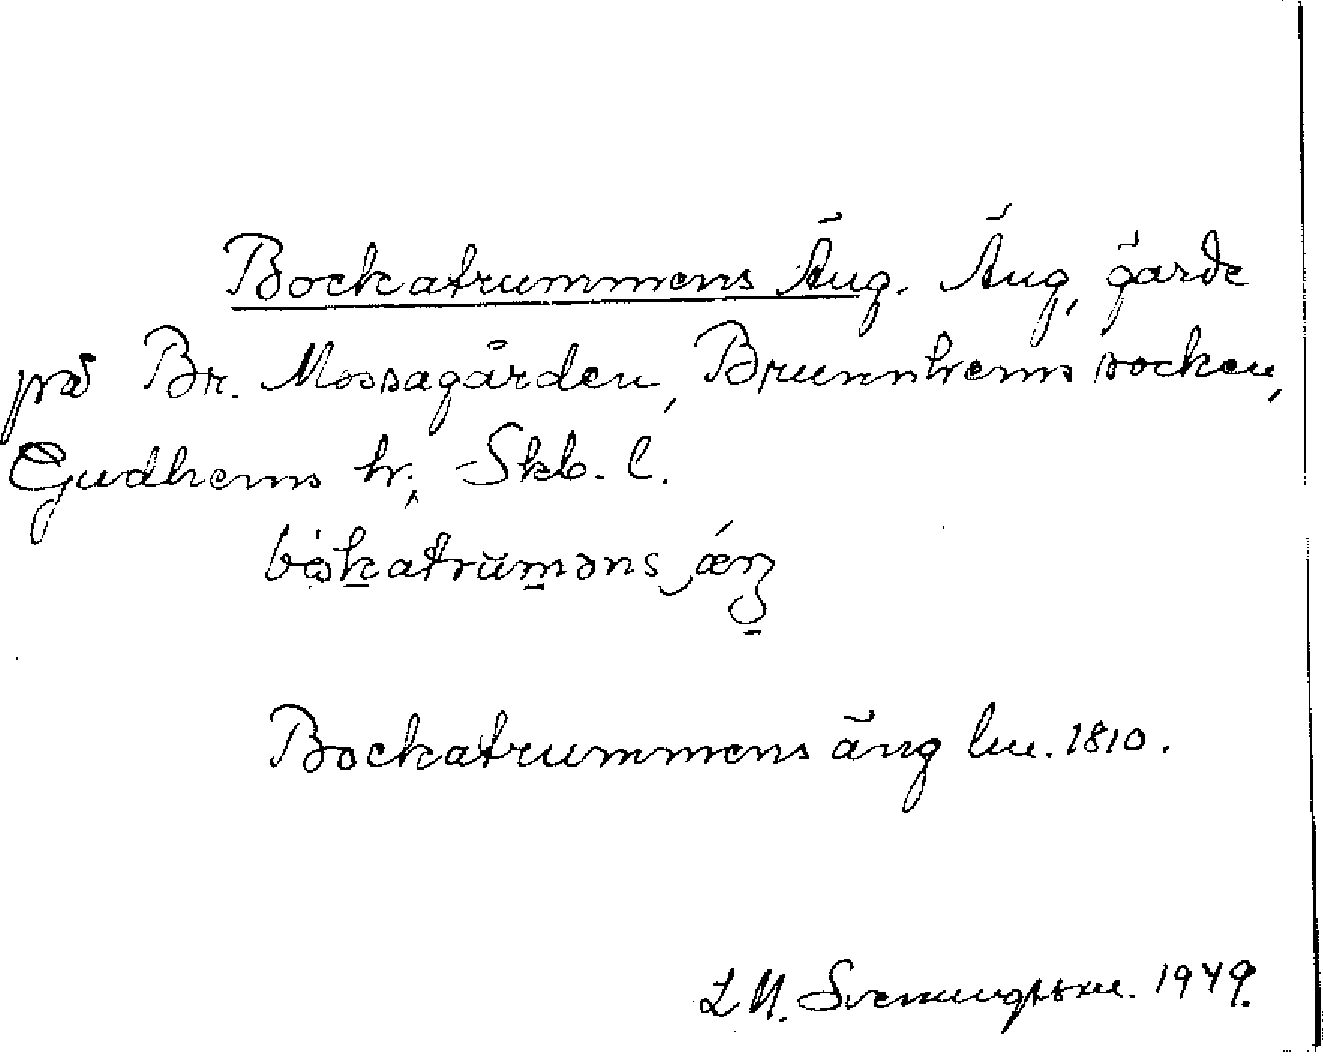 Bockatrummens Äng. Äng, gärde
på Br. Mossagården, Brunnhems socken,
Gudhems hr, Skb. l.
bòkatruməns ǽŋ
Bockatrummens äng lm. 1810.
L M. Svenungsson. 1949.